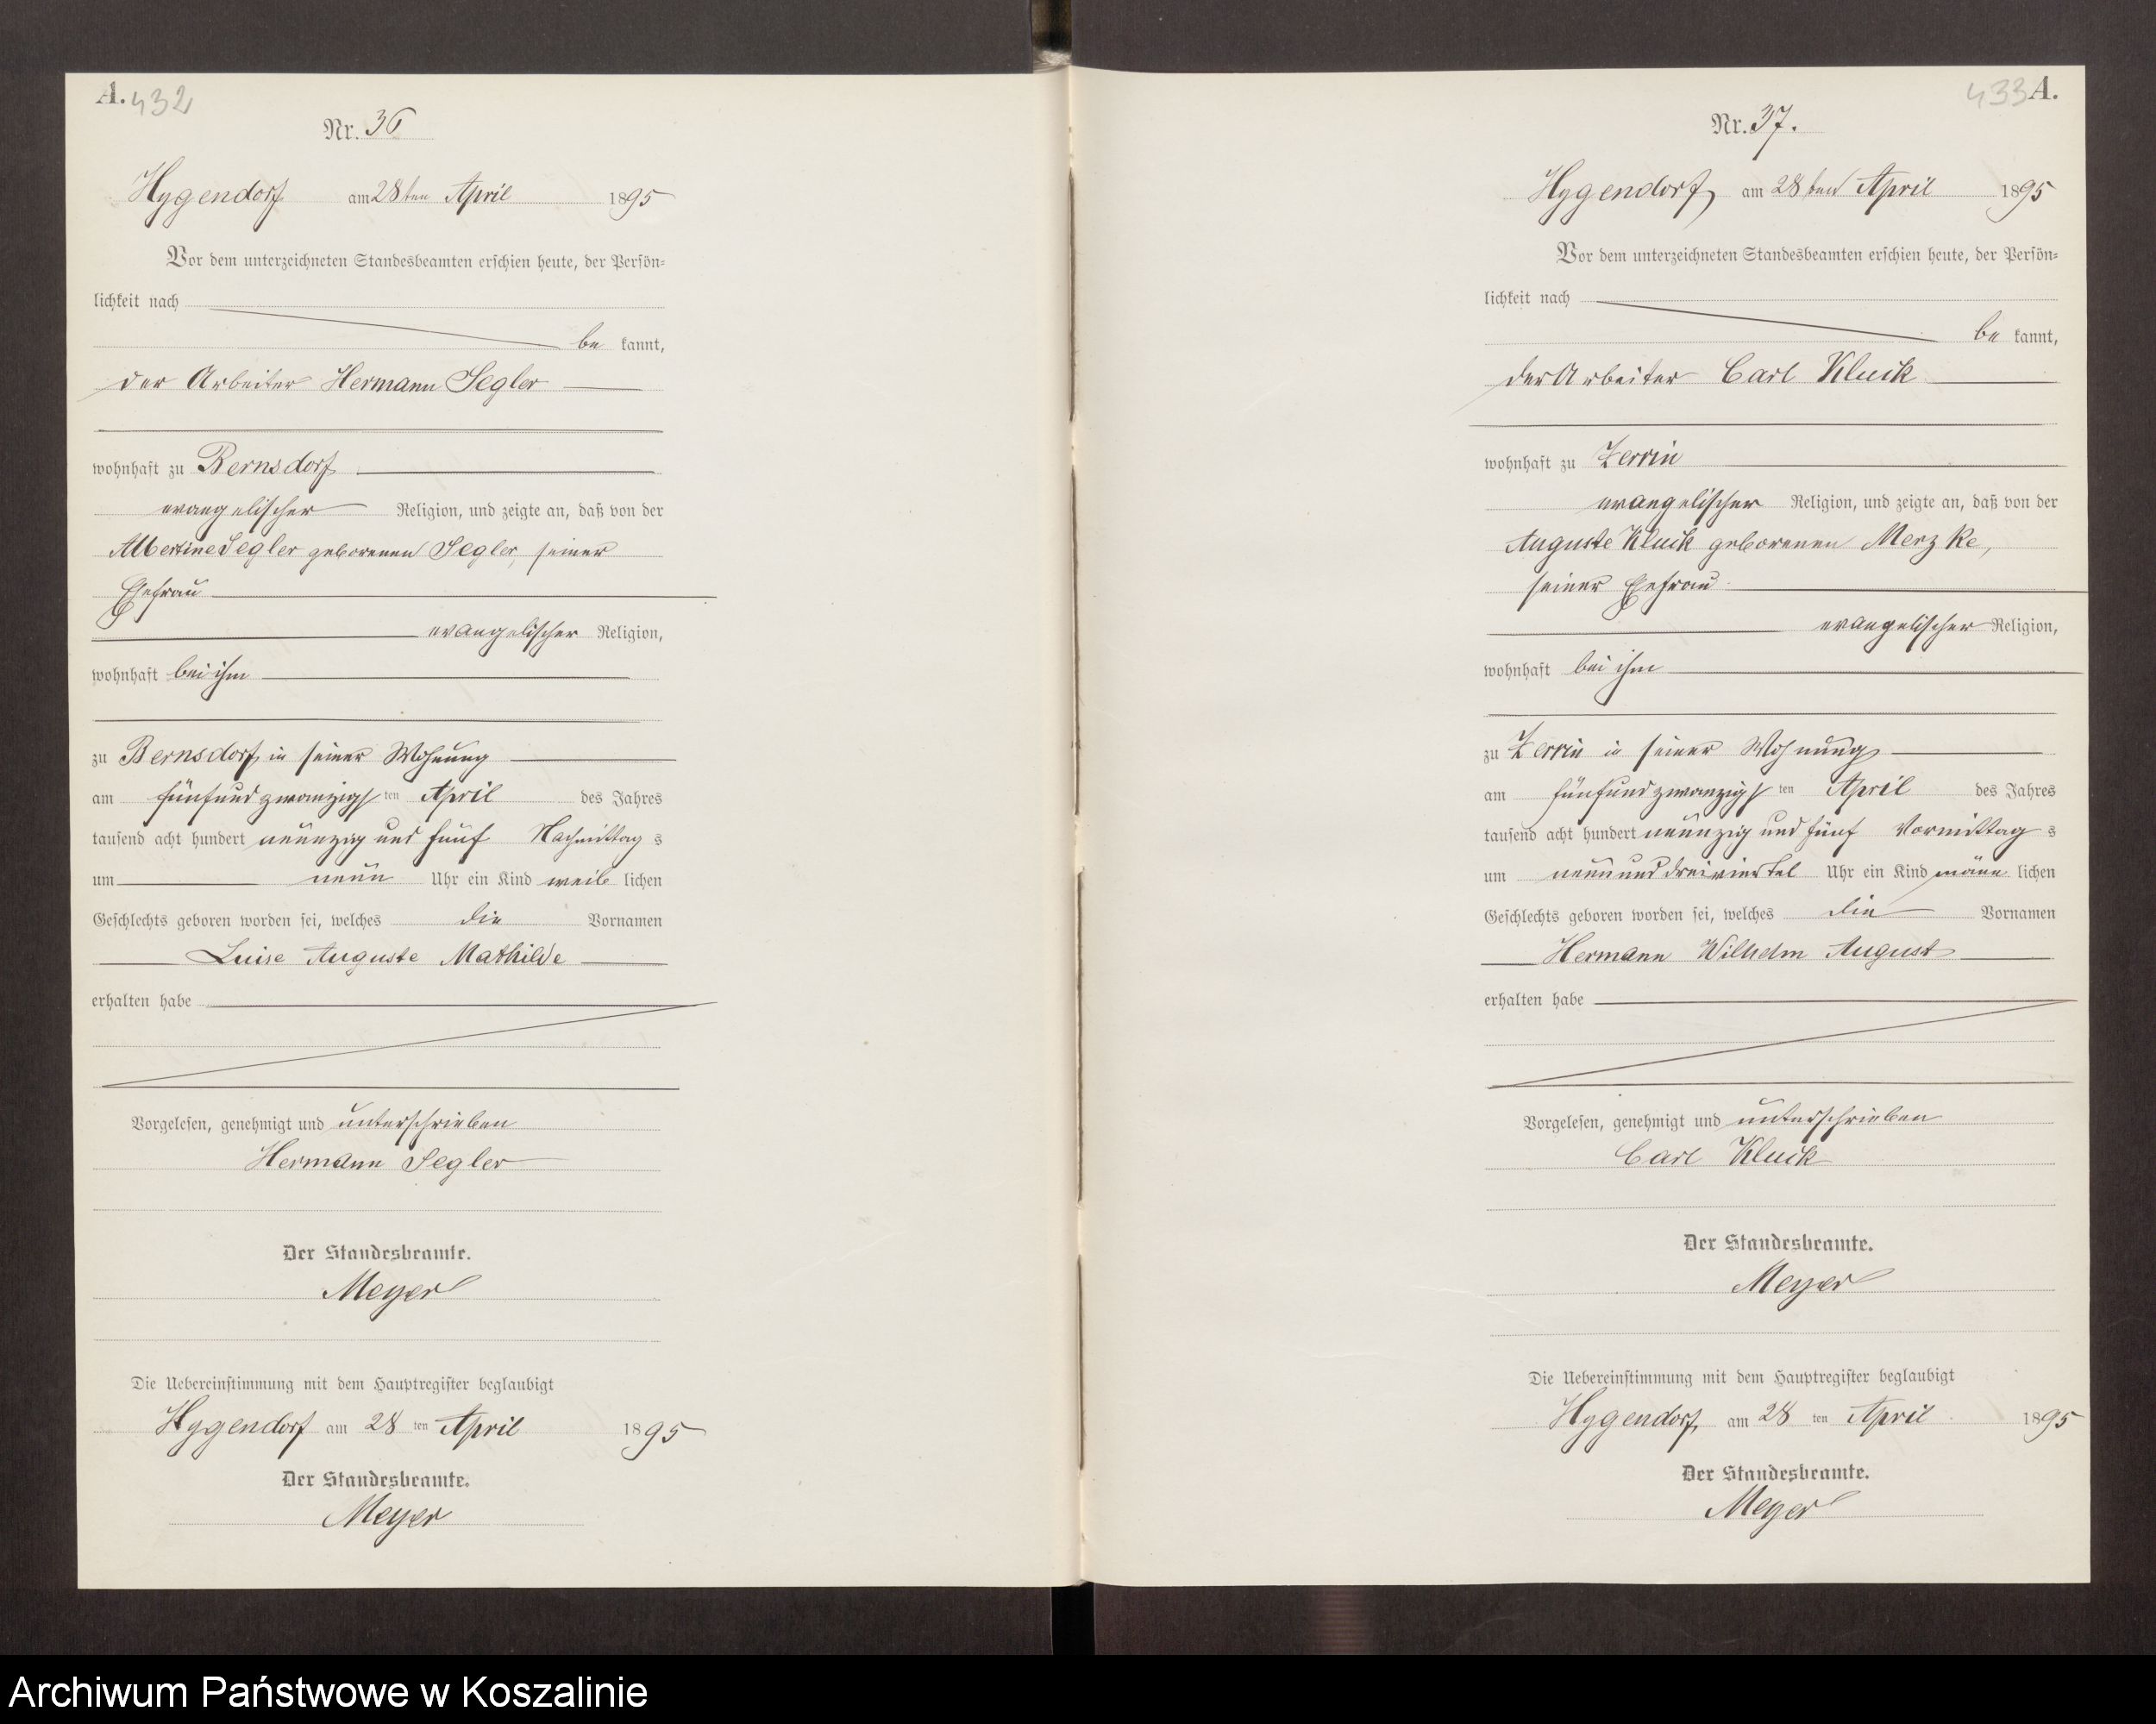 A. 432
Nr. 36
Hygendorf am 28ten April 1895
Vor dem unterzeichneten Standesbeamten erschien heute, der Persön-
lichkeit nach
be kannt,
der Arbeiter Hermann Segler
wohnhaft zu Bernsdorf
evangelischer Religion, und zeigte an, daß von der
Albertine Segler geborenen Segler, seiner
Ehefrau
evangelischer Religion,
wohnhaft bei ihm
zu Bernsdorf in seiner Wohnung
am fünfundzwanzigsten April des Jahres
tausend acht hundert neunzig und fünf Nachmittag s
um neun Uhr ein Kind weib lichen
Geschlechts geboren worden sei, welches die Vornamen
Luise Auguste Mathilde
erhalten habe
Vorgelesen, genehmigt und unterschrieben
Hermann Segler
Der Standesbeamte.
Meyer
Die Uebereinstimmung mit dem Hauptregister beglaubigt
Hygendorf am 28 ten April 1895
Der Standesbeamte.
Meyer
433 A.
Nr. 37.
Hygendorf, am 28ten April 1895
Vor dem unterzeichneten Standesbeamten erschien heute, der Persön-
lichkeit nach
be kannt,
der Arbeiter Carl Kluck
wohnhaft zu Zerrin
evangelischer Religion, und zeigte an, daß von der
Auguste Kluck geborenen Merzke,
seiner Ehefrau
evangelischer Religion,
wohnhaft bei ihm
zu Zerrin in seiner Wohnung
am fünfundzwanzigsten April des Jahres
tausend acht hundert neunzig und fünf Vormittag s
um neun und dreiviertel Uhr ein Kind männ lichen
Geschlechts geboren worden sei, welches die Vornamen
Hermann Wilhelm August
erhalten habe
Vorgelesen, genehmigt und unterschrieben
Carl Kluck
Der Standesbeamte.
Meyer
Die Uebereinstimmung mit dem Hauptregister beglaubigt
Hygendorf, am 28 ten April 1895
Der Standesbeamte.
Meyer
Archiwum Państwowe w Koszalinie